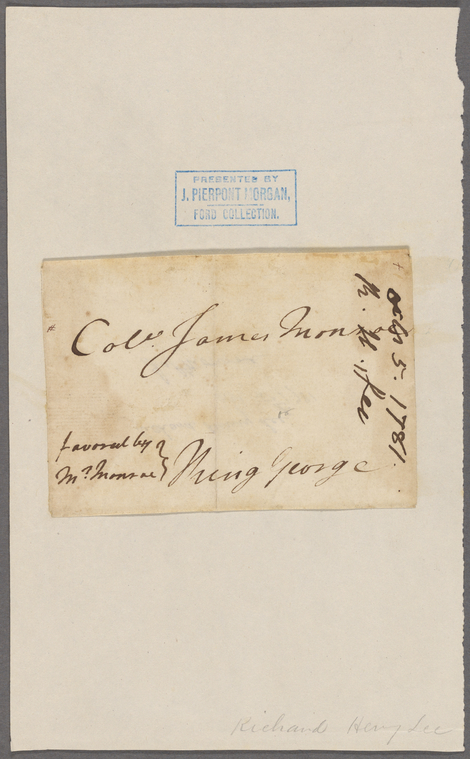 PRESENTED BY
J. PIERPONT MORGAN,
FORD COLLECTION.
Colo. James Monroe
favored by }
Mr. Monroe }
King George
R. H. Lee
5. 1781.
Richard Henry Lee